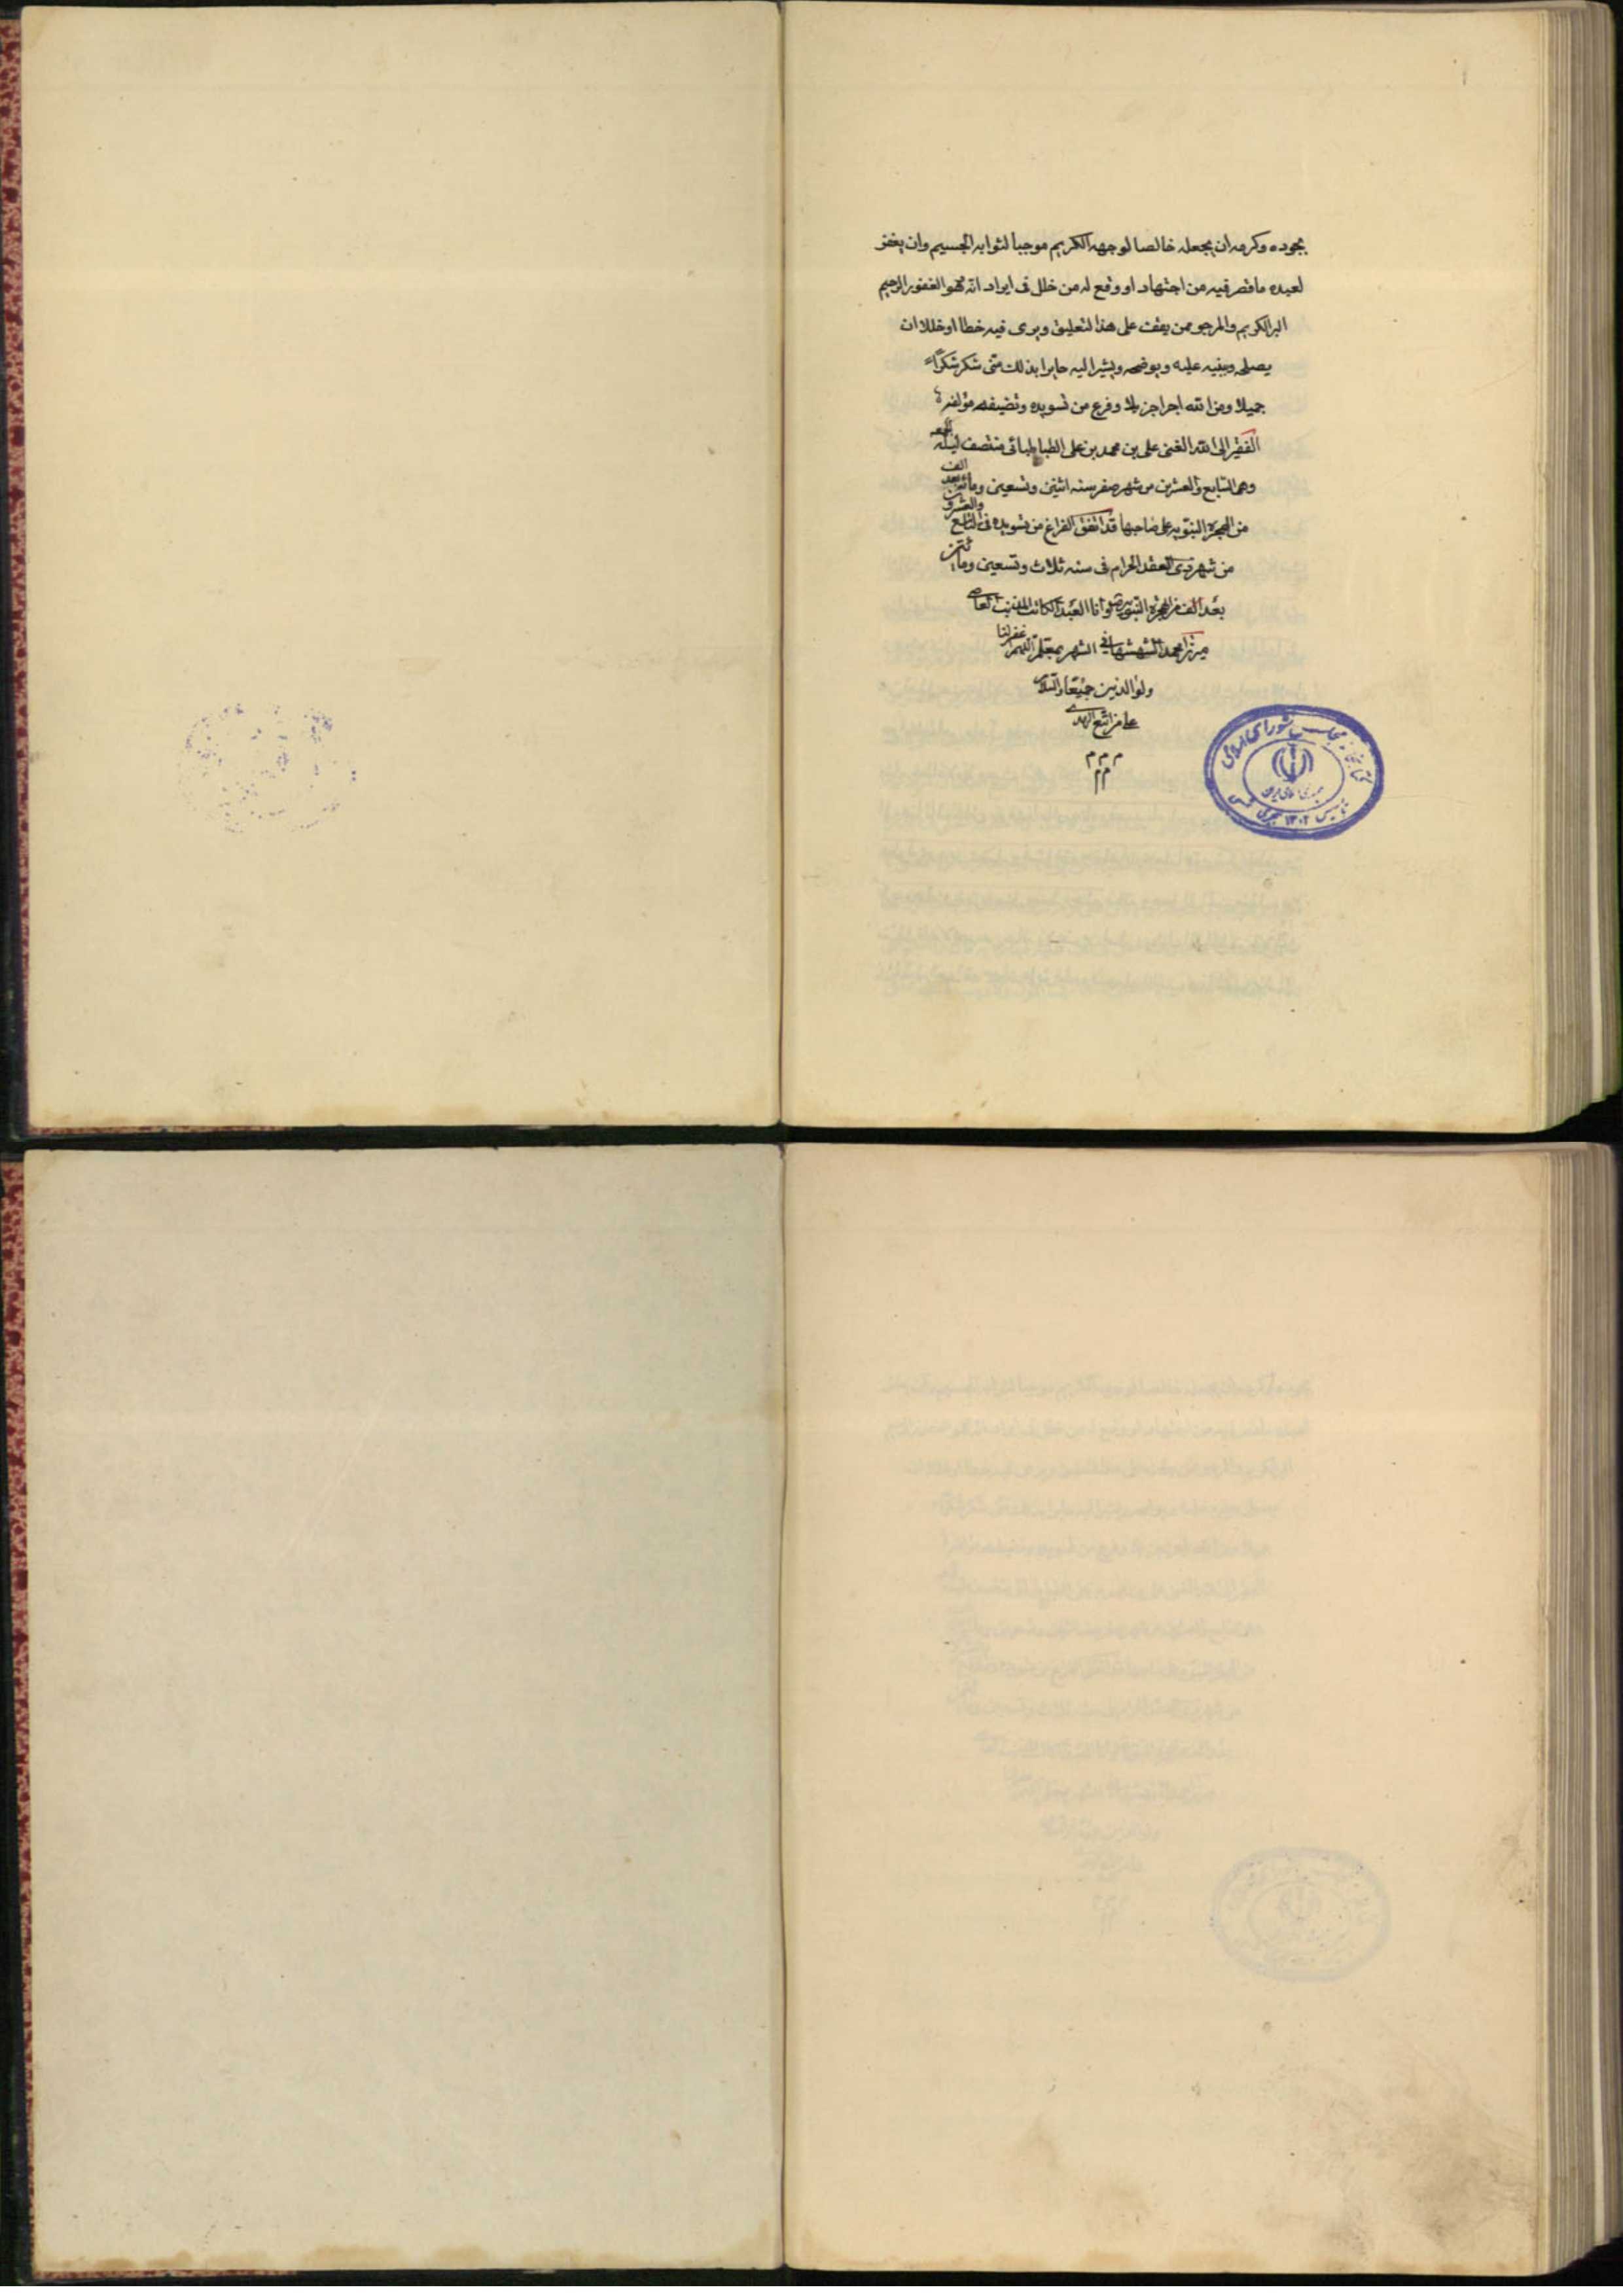 بجوده وكرمه ان يجعله خالصا لوجهه الكريم موجبا لثوابه الجسيم وان يغفر
لعبده ما قصر فيه من اجتهاد او وقع له من خلل فى ايراد انه هو الغفور الرحيم
البر الكريم والمرجو ممن يقف على هذا التعليق ويرى فيه خطا او خللا ان
يصلحه وينبه عليه ويوضحه ويشير اليه حايزا بذلك منى شكر شكرا
جميلا ومن الله اجرا جزيلا وفرغ من تسويده وتصنيفه مؤلفه
الفقير الى الله الغنى على بن محمد بن على الطباطبائى منتصف ليلة الجمعه
وهى السابع والعشرين من شهر صفر سنه اثنين وتسعين ومائة بعد الف
من الهجرة النبويه على صاحبها قد اتفق الفراغ من تسويده فى التاسع والعشرون
من شهر ذى القعد الحرام فى سنه ثلاث وتسعين ومائتين
بعد الف من الهجرة النبويه وانا العبد الكاتب المذنب العاصى
ميرزا محمد الشهشهانى الشهير بمعلم اللهم اغفر لنا
ولوالدين جميعا والسلام
على من اتبع الهدى
م م م
م م
كتابخانه مجلس شوراى اسلامى
جمهورى اسلامى ايران
تاسيس ١٣٠٢ هجرى شمسى